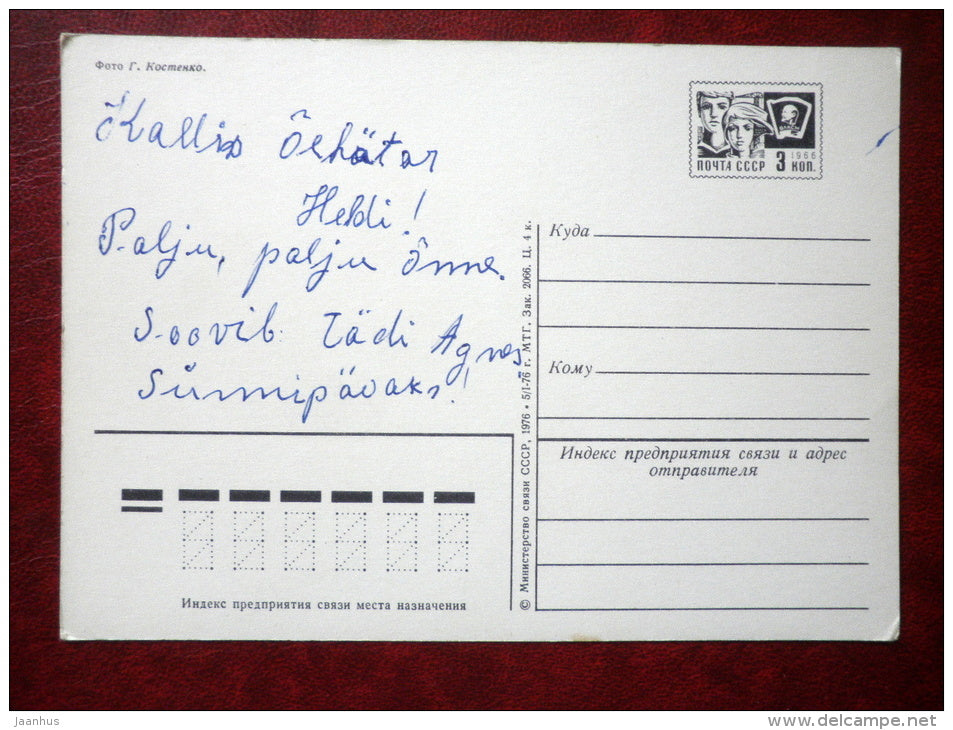 Фото Г. Костенко.
Kallis Õetütar
Heldi!
Palju, palju Õnne.
Soovib: Tädi Agnes
Sünnipäevaks!
1966
ПОЧТА СССР 3 КОП.
Куда
Кому
Индекс предприятия связи и адрес
отправителя
© Министерство связи СССР, 1976 • 5/I-76 г. МТГ. Зак. 2066. Ц. 4 к.
Индекс предприятия связи места назначения
Jaanhus
delcampe.net